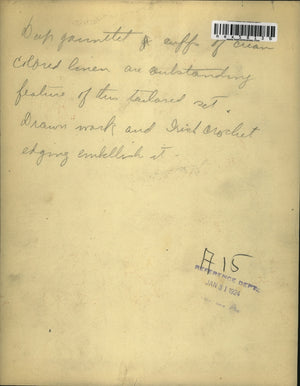 Deep gauntlet cuffs of cream
colored linen are outstanding
feature of this tailored set.
Drawn work and Irish crochet
edging embellish it.
A 15
REFERENCE DEPT.
JAN 31 1924